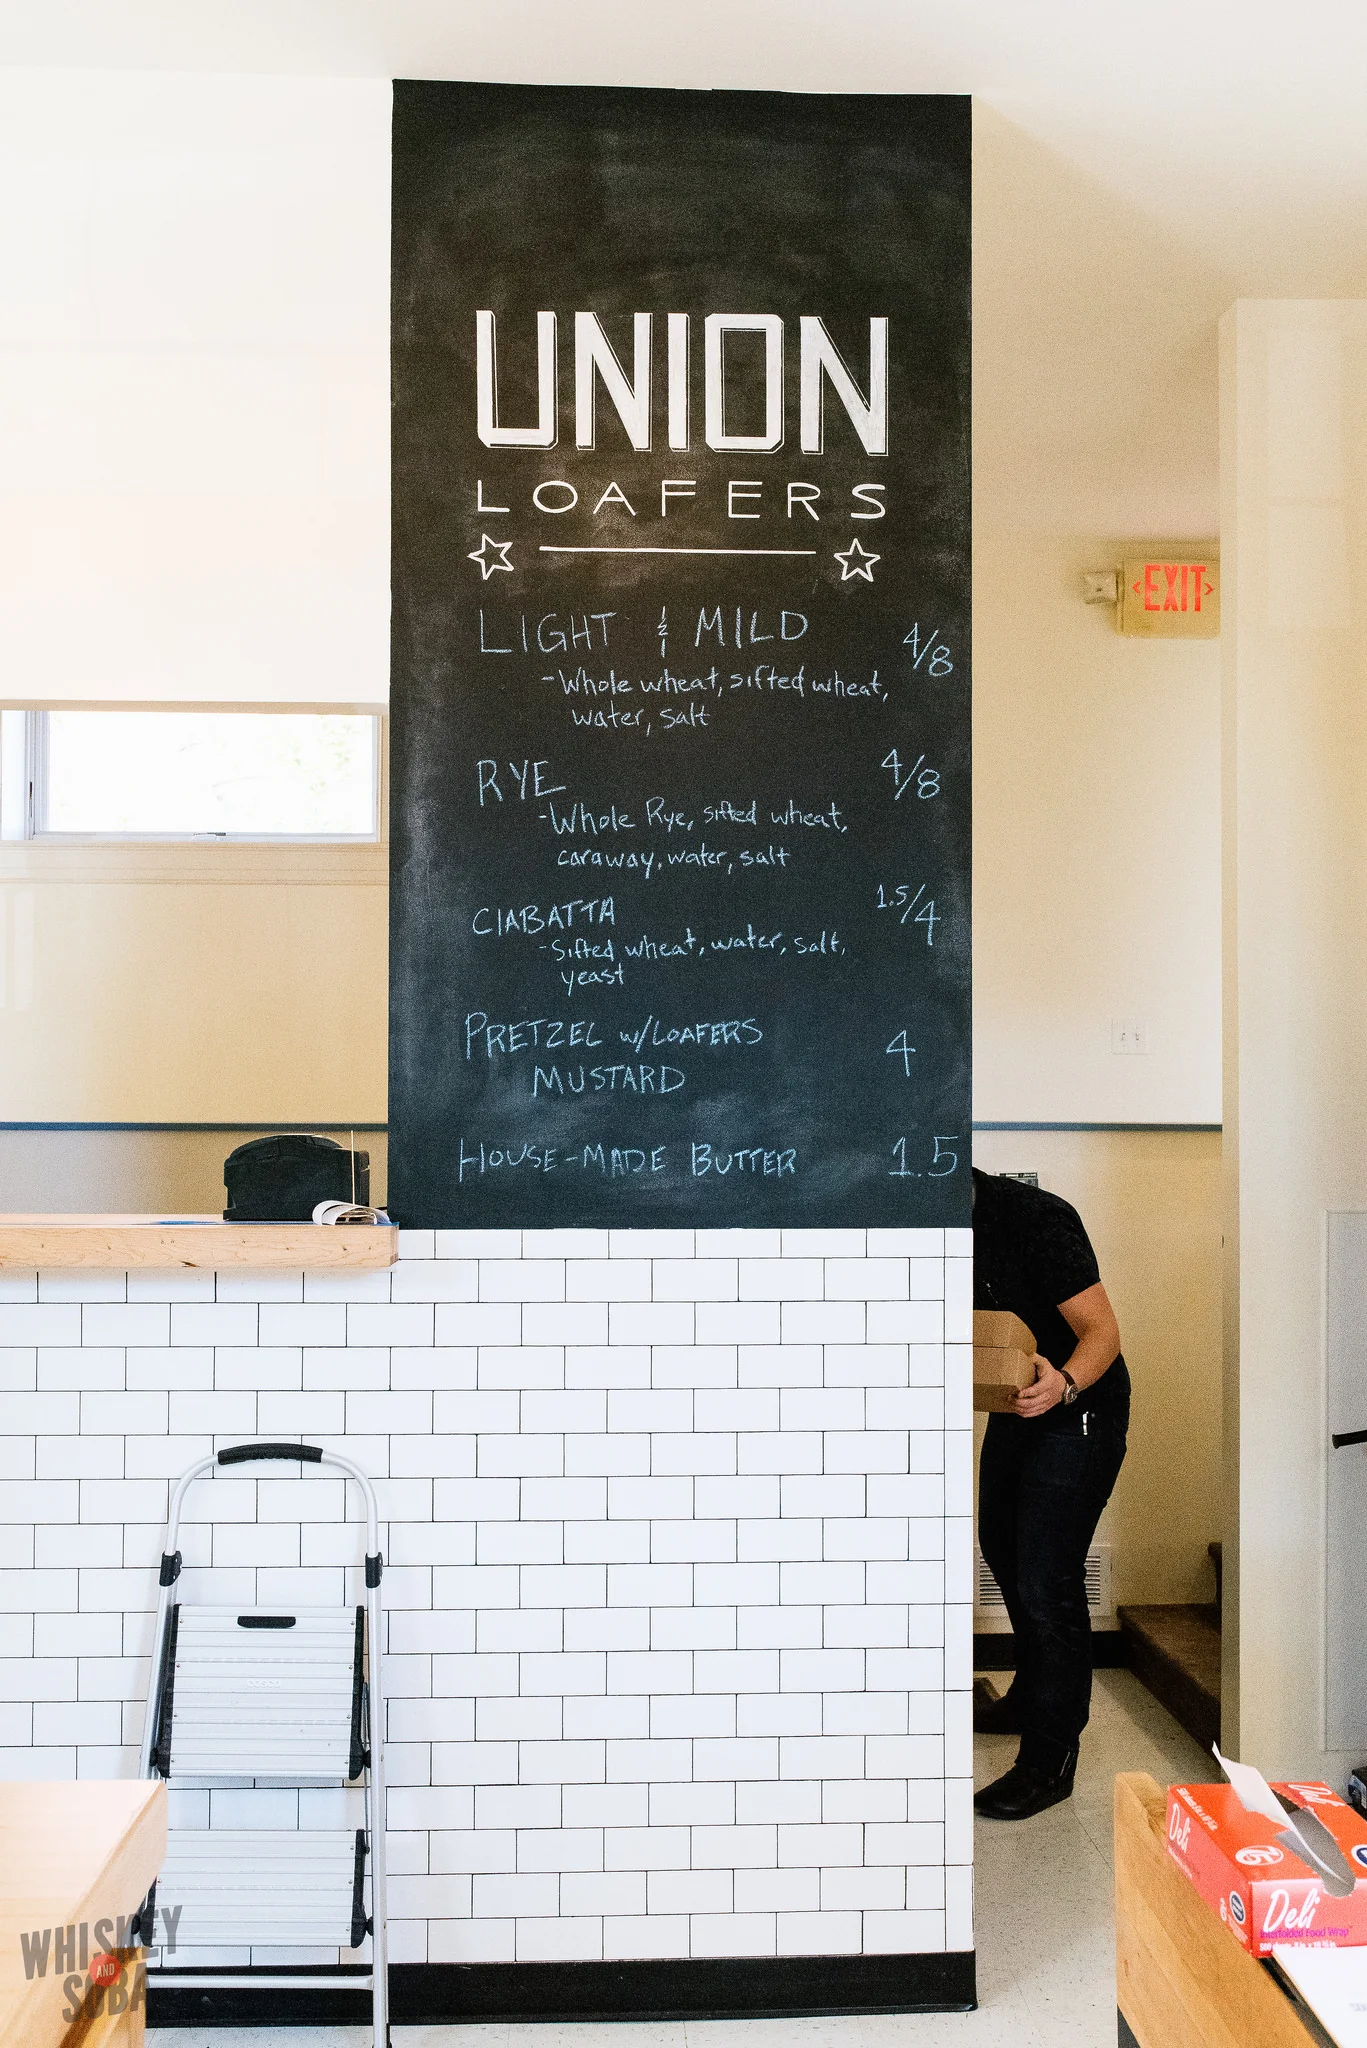 UNION
LOAFERS
LIGHT & MILD 4/8
-Whole wheat, sifted wheat,
water, salt
RYE 4/8
-Whole Rye, sifted wheat,
caraway, water, salt
CIABATTA 1.5/4
-Sifted wheat, water, salt,
yeast
PRETZEL w/LOAFERS 4
MUSTARD
HOUSE-MADE BUTTER 1.5
EXIT
Deli
Deli
Interfolded Food Wrap
WHISKEY
AND
SOBA